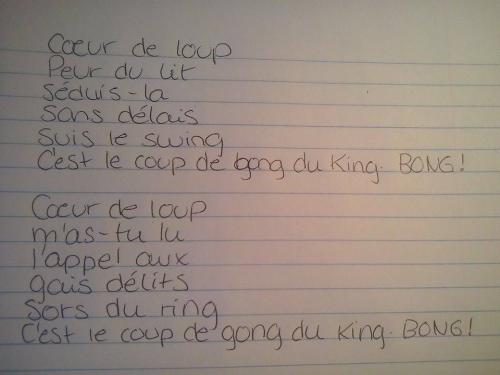 Cœur de loup
Peur du lit
Séduis-la
Sans délais
Suis le swing
C'est le coup de gong du King. BONG!
Cœur de loup
m'as-tu lu
l'appel aux
gais délits
Sors du ring
C'est le coup de gong du King. BONG!